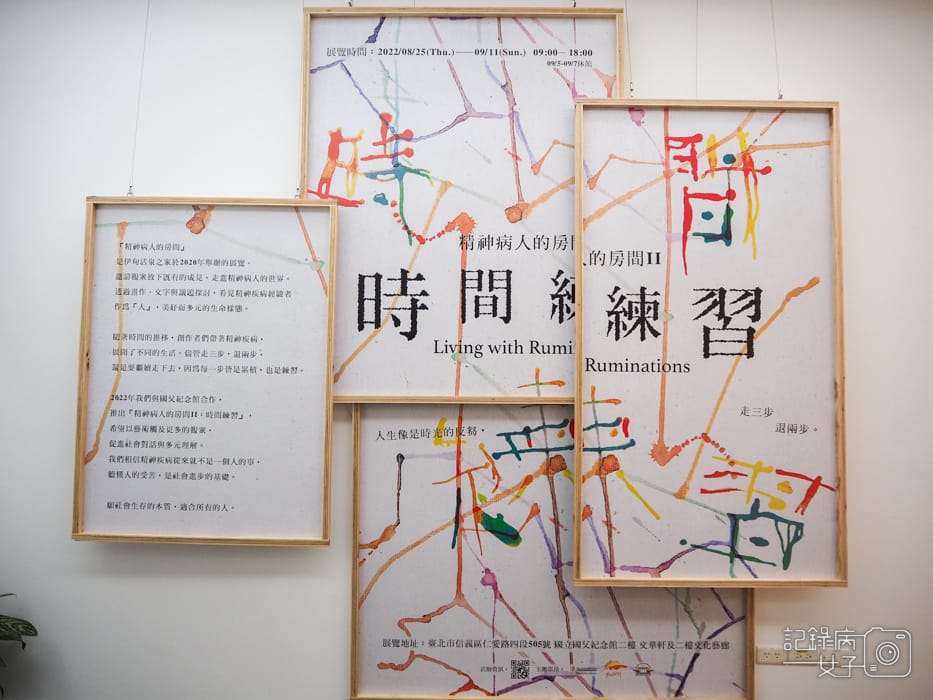 展覽時間：2022/08/25(Thu.)——09/11(Sun.) 09:00—18:00
09/5-09/7休館
精神病人的房間
時間練
Living with Rumi
人的房間II
練習
Ruminations
走三步
退兩步。
「精神病人的房間」
是伊甸活泉之家於2020年舉辦的展覽，
邀請觀衆放下旣有的成見，走進精神病人的世界，
透過畫作、文字與議題探討，看見精神疾病經驗者
作爲「人」，美好而多元的生命樣態。
隨著時間的推移，創作者們帶著精神疾病，
展開了不同的生活。儘管走三步，退兩步，
還是要繼續走下去，因爲每一步皆是累積，也是練習。
2022年我們與國父紀念館合作，
推出「精神病人的房間II：時間練習」，
希望以藝術觸及更多的觀衆，
促進社會對話與多元理解。
我們相信精神疾病從來就不是一個人的事，
聽懂人的受苦，是社會進步的基礎。
願社會生存的本質，適合所有的人。
人生像是時光的反芻，
展覽地址：臺北市信義區仁愛路四段505號 國立國父紀念館二樓 文華軒及二樓文化藝廊
活動資訊：
主辦單位：
記錄病
女子